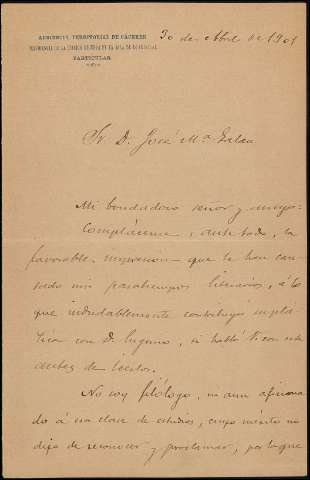 AUDIENCIA TERRITORIAL DE CÁCERES
PARTICULAR
30 de Abril de 1901
Sr. D. José Mª Galan
Mi bondadoso señor y amigo:
Compláceme, ante todo, la
favorable impresión que le han cau-
sado mis pasatiempos literarios, á lo
que indudablemente contribuyó su plá-
tica con D. Eugenio, si habló ti con este
antes de leerlos.
No soy filólogo, ni aun aficiona-
do á esa clase de estudios, cuyo mérito no
dejo de reconocer y proclamar, por lo que